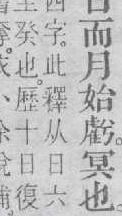 日而月始虧。冥也。
四字。此釋从日六
至癸也。歷十日復